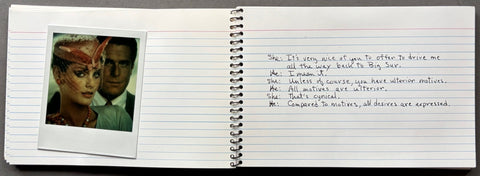 She: It's very nice of you to offer to drive me
all the way back to Big Sur.
He: I mean it.
She: Unless of course, you have ulterior motives.
He: All motives are ulterior.
She: That's cynical.
He: Compared to motives, all desires are expressed.